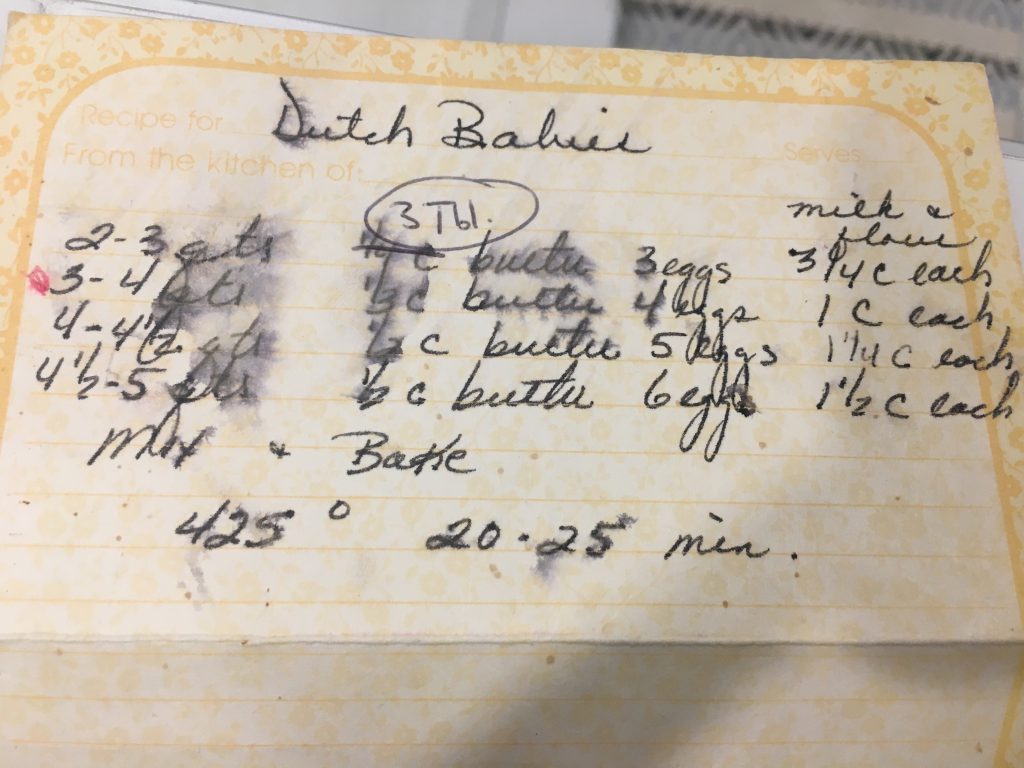 Recipe for Dutch Babies
From the kitchen of: Serves
3 Tbl.
milk &
flour
2-3 qts butter 3 eggs 3/4 c each
3-4 qts 1/2 c butter 4 eggs 1 c each
4-4 1/2 qts 1/2 c butter 5 eggs 1 1/4 c each
4 1/2-5 qts 1/2 c butter 6 eggs 1 1/2 c each
Mix & Bake
425° 20-25 min.